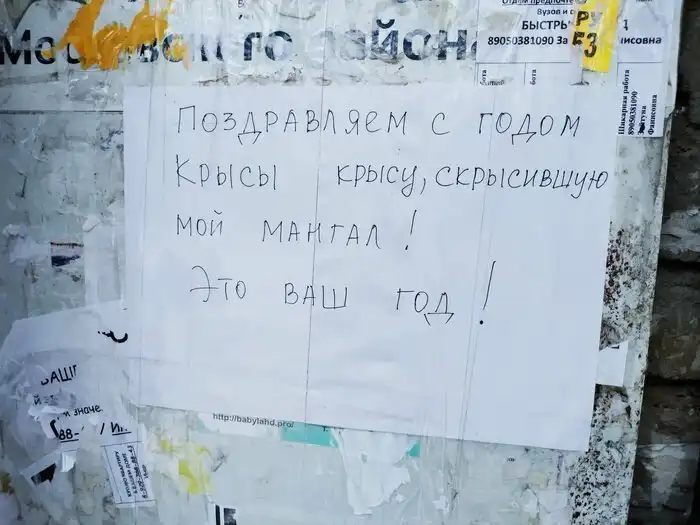 Вузов и с
БЫСТРЬ
89050381090 За
исовна
РУ
53
Шикарная работа
89050381090
Фаиисовна
ПОЗДРАВЛЯЕМ С ГОДОМ
КРЫСЫ КРЫСУ, СКРЫСИВШУЮ
МОЙ МАНГАЛ!
ЭТО ВАШ ГОД!
ВАШ
значе
88-
http://babylahd.pro/